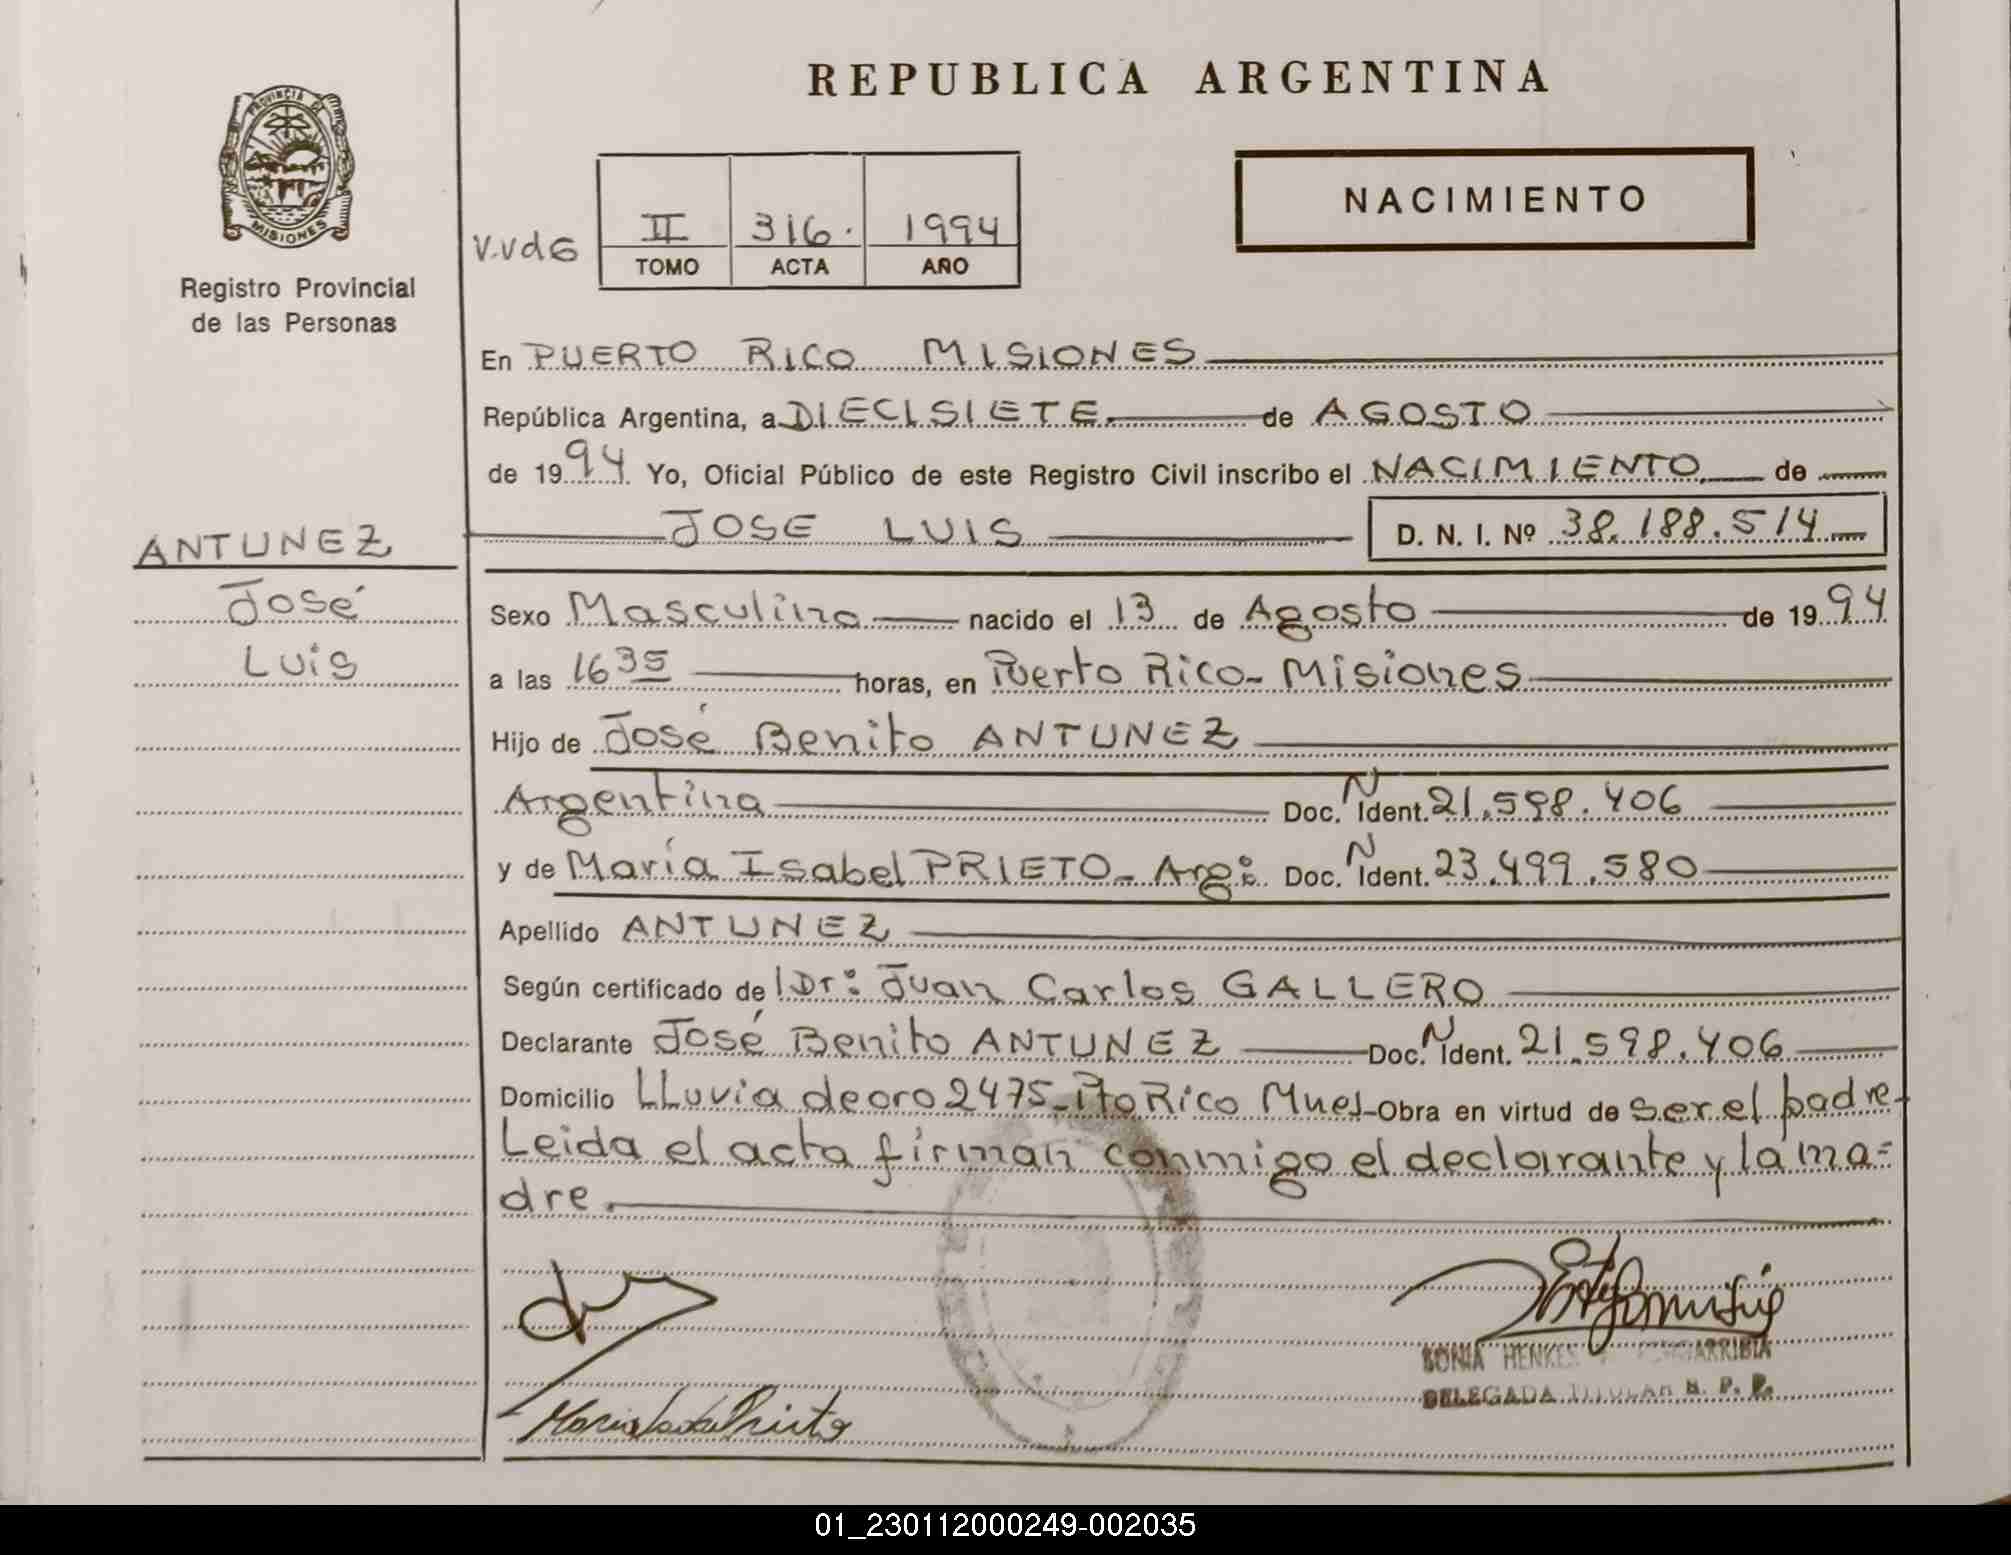 REPUBLICA ARGENTINA
PROVINCIA DE
MISIONES
Registro Provincial
de las Personas
NACIMIENTO
V.VdG
II 316. 1994
TOMO ACTA AÑO
En PUERTO RICO MISIONES
República Argentina, a DIECISIETE. de AGOSTO
de 1994 Yo, Oficial Público de este Registro Civil inscribo el NACIMIENTO de
JOSE LUIS D. N. I. Nº 38.188.514
ANTUNEZ
José
Luis
Sexo Masculino nacido el 13 de Agosto de 1994
a las 16 35 horas, en Puerto Rico- Misiones
Hijo de José Benito ANTUNEZ
Argentina Doc. N Ident. 21.598.406
y de María Isabel PRIETO- Arg: Doc. N Ident. 23.499.580
Apellido ANTUNEZ
Según certificado de Dr: Juan Carlos GALLERO
Declarante José Benito ANTUNEZ Doc. N Ident. 21.598.406
Domicilio LLuvia de oro 2475-Pto Rico Mnes- Obra en virtud de ser el padre-
Leida el acta firman conmigo el declarante y la ma=
dre.
SONIA HENKES
DELEGADA TITULAR R. P. P.
01_230112000249-002035